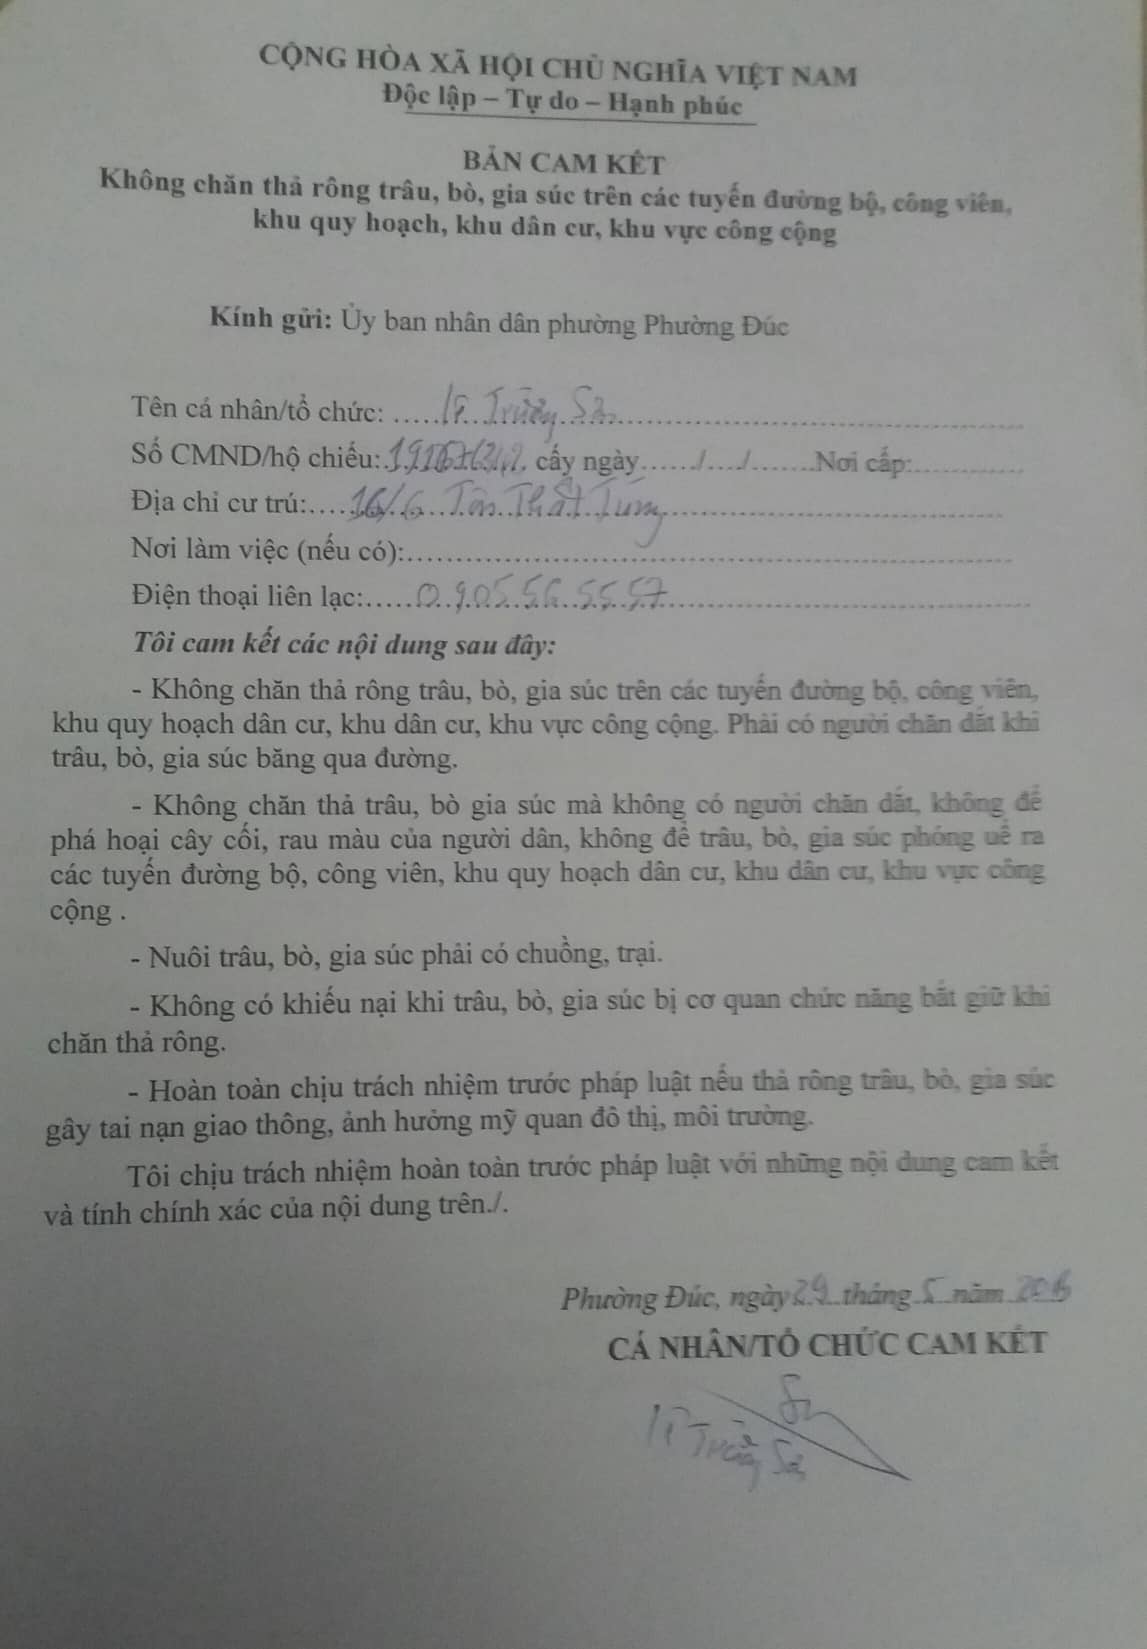 CỘNG HÒA XÃ HỘI CHỦ NGHĨA VIỆT NAM
Độc lập – Tự do – Hạnh phúc
BẢN CAM KẾT
Không chăn thả rông trâu, bò, gia súc trên các tuyến đường bộ, công viên,
khu quy hoạch, khu dân cư, khu vực công cộng
Kính gửi: Ủy ban nhân dân phường Phường Đúc
Tên cá nhân/tổ chức: Lê Trường Sơn
Số CMND/hộ chiếu: cấy ngày ....../..../...... Nơi cấp:
Địa chỉ cư trú: 16/6 Tôn Thất Tùng
Nơi làm việc (nếu có):
Điện thoại liên lạc: 0905 56 5557
Tôi cam kết các nội dung sau đây:
- Không chăn thả rông trâu, bò, gia súc trên các tuyến đường bộ, công viên,
khu quy hoạch dân cư, khu dân cư, khu vực công cộng. Phải có người chăn dắt khi
trâu, bò, gia súc băng qua đường.
- Không chăn thả trâu, bò gia súc mà không có người chăn dắt, không để
phá hoại cây cối, rau màu của người dân, không để trâu, bò, gia súc phóng uế ra
các tuyến đường bộ, công viên, khu quy hoạch dân cư, khu dân cư, khu vực công
cộng .
- Nuôi trâu, bò, gia súc phải có chuồng, trại.
- Không có khiếu nại khi trâu, bò, gia súc bị cơ quan chức năng bắt giữ khi
chăn thả rông.
- Hoàn toàn chịu trách nhiệm trước pháp luật nếu thả rông trâu, bò, gia súc
gây tai nạn giao thông, ảnh hưởng mỹ quan đô thị, môi trường.
Tôi chịu trách nhiệm hoàn toàn trước pháp luật với những nội dung cam kết
và tính chính xác của nội dung trên./.
Phường Đúc, ngày 29 tháng 5 năm
CÁ NHÂN/TỔ CHỨC CAM KẾT
Lê Trường Sơn